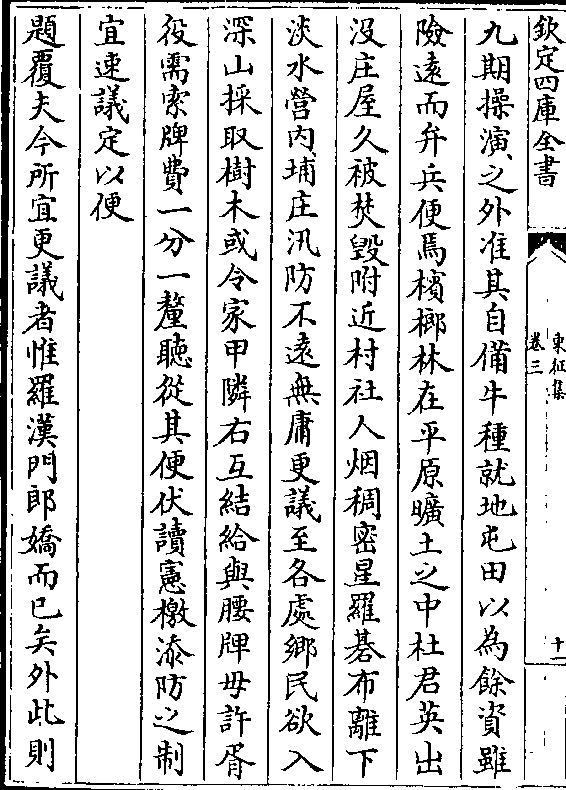 欽定四庫全書
東征集
卷三
十一
九期操演之外准其自備牛種就地屯田以為餘資雖
險遠而弁兵便焉檳榔林在平原曠土之中杜君英出
沒庄屋久被焚毀附近村社人烟稠密星羅碁布離下
淡水營內埔庄汛防不遠無庸更議至各處鄉民欲入
深山採取樹木或令家甲隣右互結給與腰牌毋許胥
役需索牌費一分一釐聽從其便伏讀憲檄添防之制
宜速議定以便
題覆夫今所宜更議者惟羅漢門郎嬌而已矣外此則